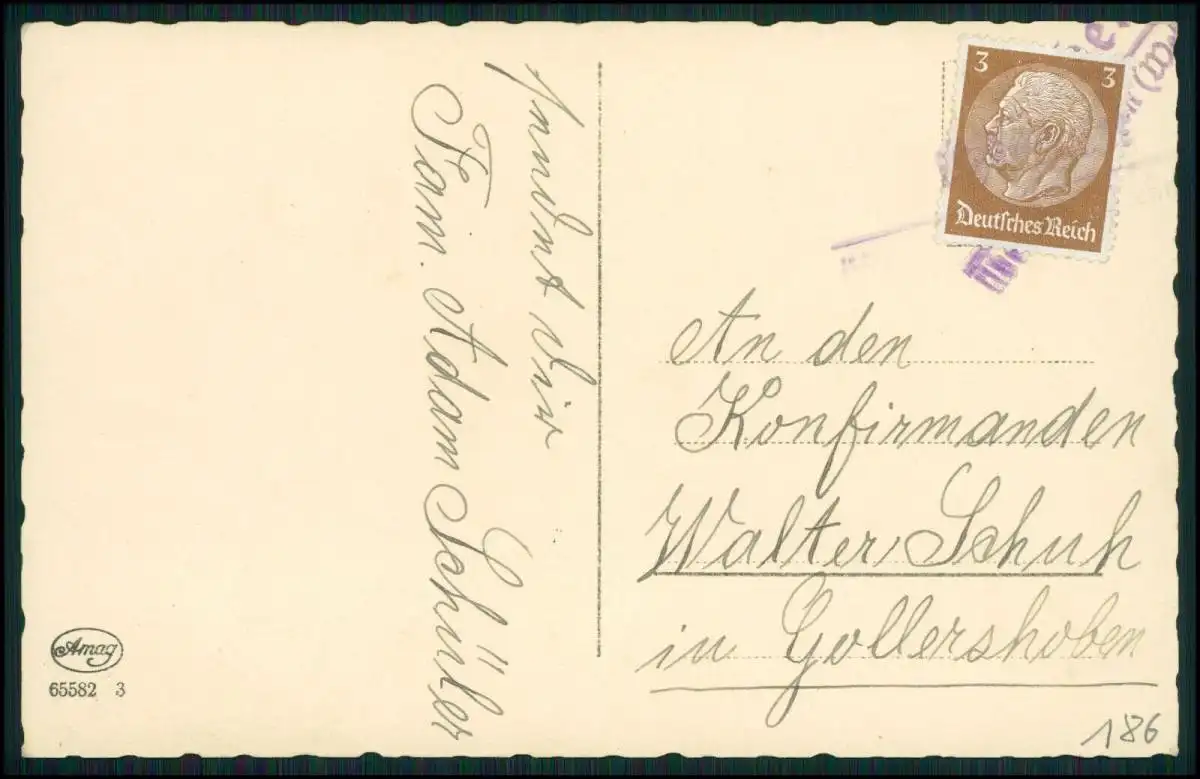 sendet dir
Fam. Adam Schüler
3 3
Deutsches Reich
An den
Konfirmanden
Walter Schuh
in Gollershoben
Amag
65582 3
186